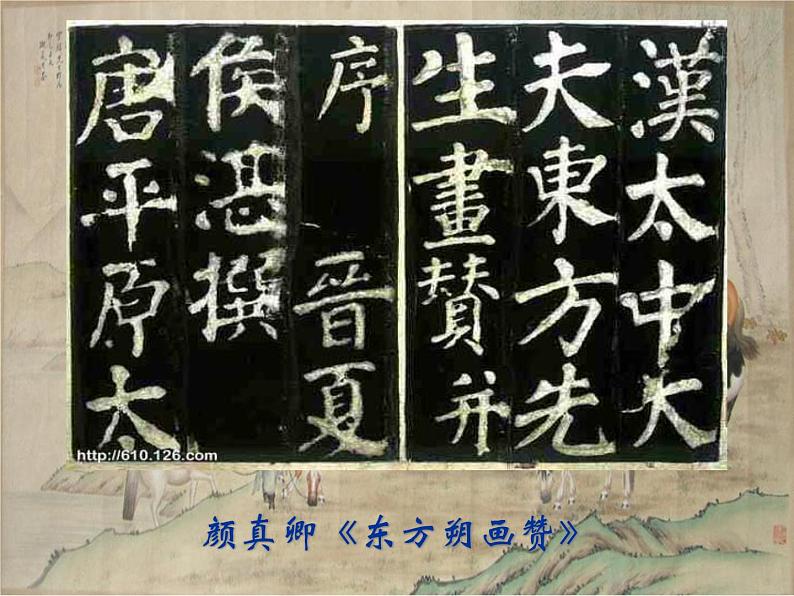 漢太中大
夫東方先
生畫賛并
序 晉夏
侯湛撰
唐平原太
http://610.126.com
颜真卿《东方朔画赞》